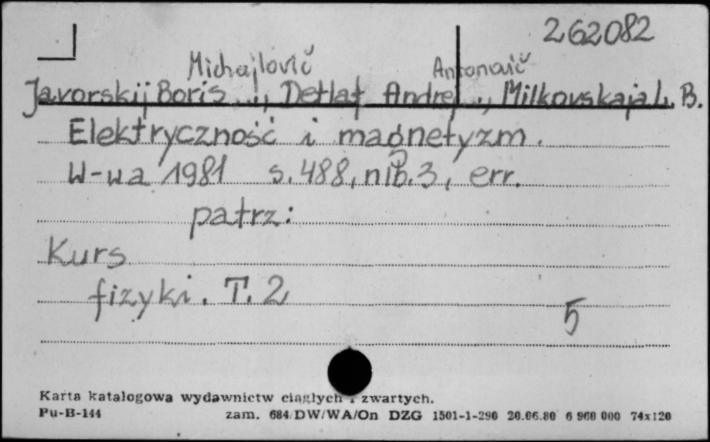 262082
Michajlovič Antonovič
Javorskij Boris ..., Detlaf Andrej .., Milkovskaja L. B.
Elektryczność i magnetyzm.
W-wa 1981 s. 488, nlb. 3, err.
patrz:
Kurs
fizyki. T. 2
5
Karta katalogowa wydawnictw ciągłych i zwartych.
Pu-B-144 zam. 684/DW/WA/On DZG 1501-1-290 20.06.80 6 960 000 74x120